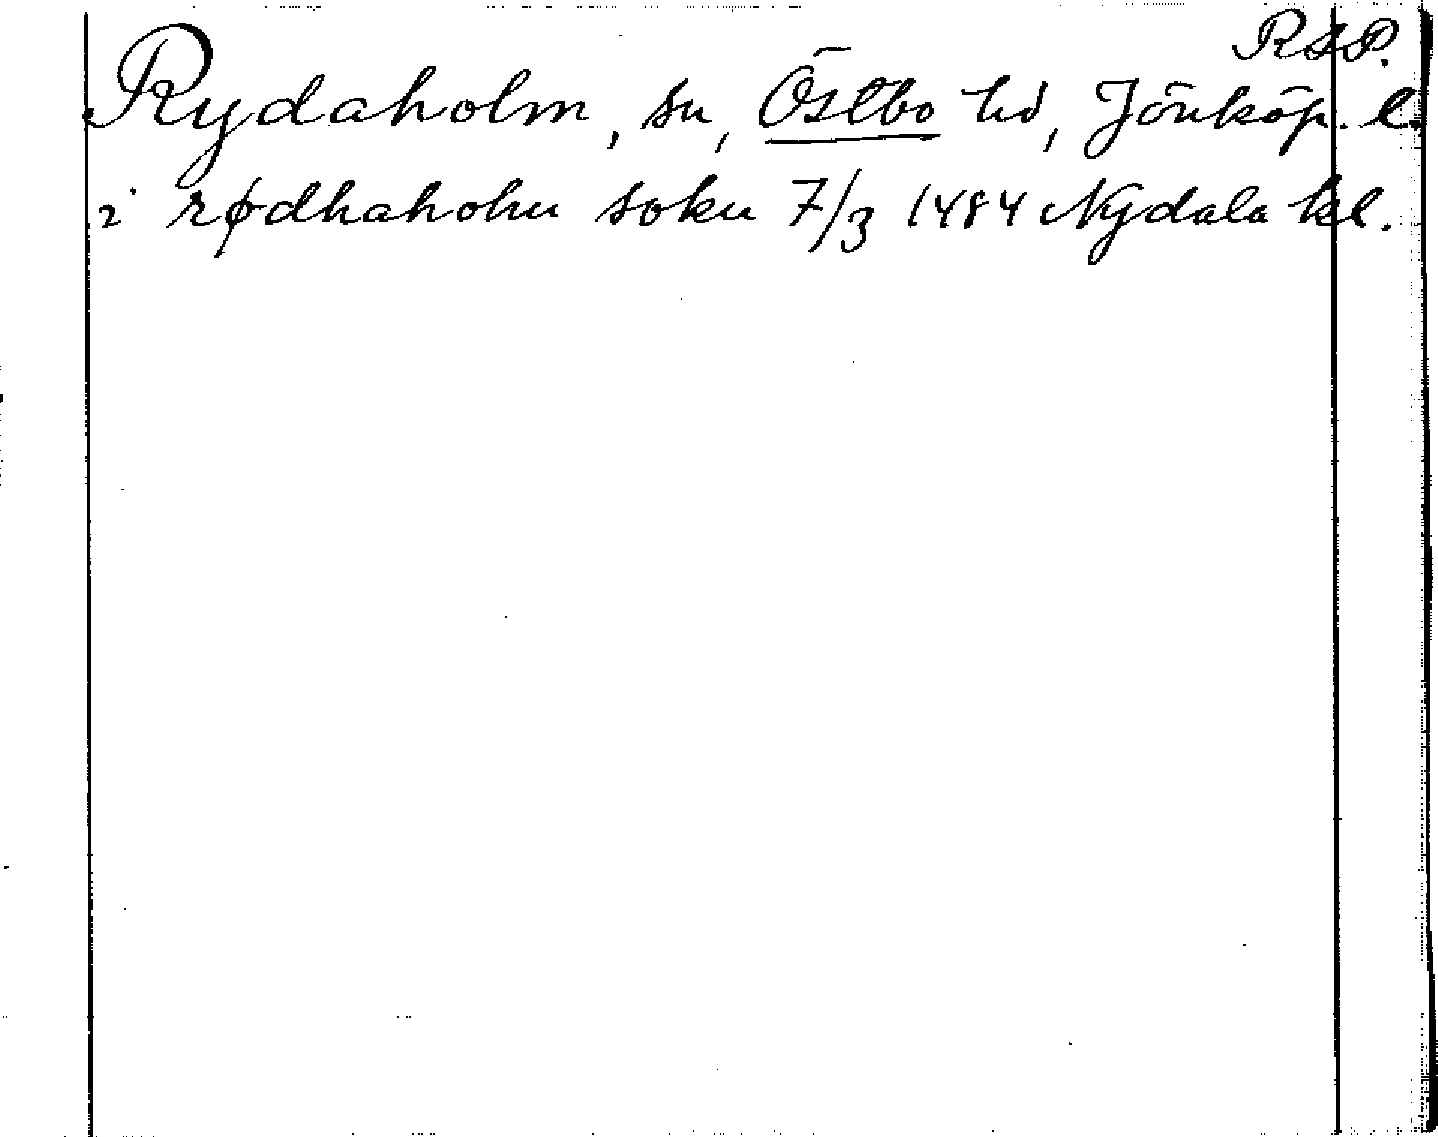 RSP.
Rydaholm, sn, Östbo hd, Jönköp. l.
i rødhaholm sokn 7/3 1484 Nydala kl.